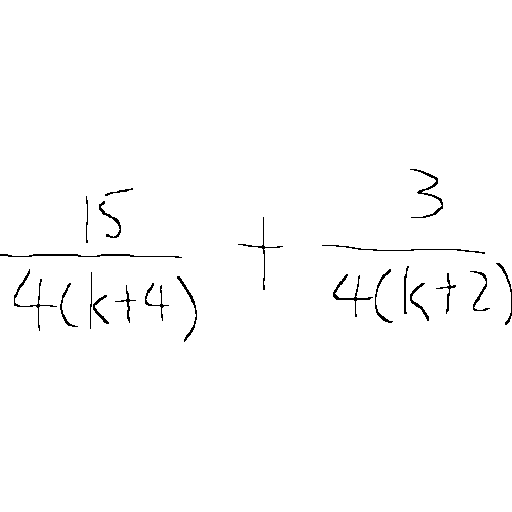 \frac{15}{4(k+4)} + \frac{3}{4(k+2)}